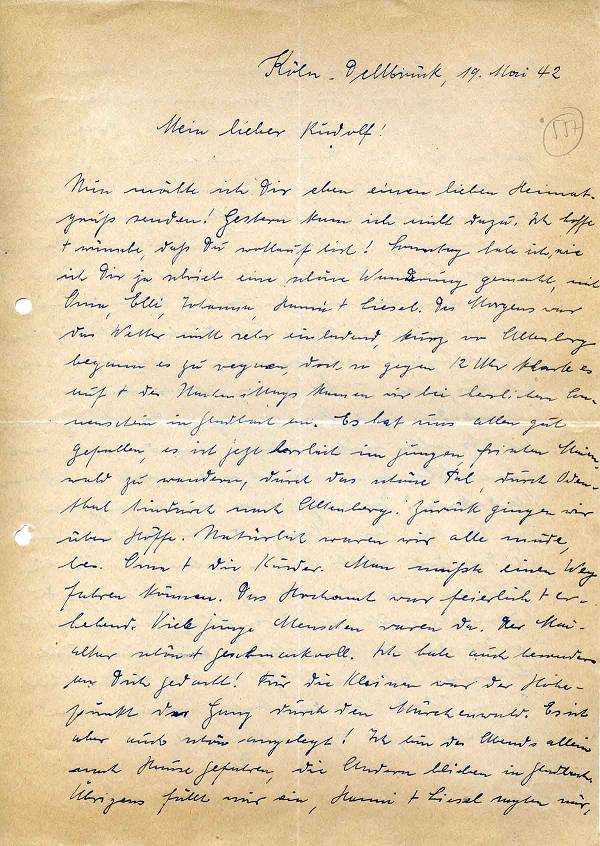 Köln-Dellbrück, 19. Mai 42
557
Mein lieber Rudolf!
Nun möchte ich Dir eben einen lieben Heimat-
gruß senden! Gestern kam ich nicht dazu. Ich hoffe
+ wünsche, daß Du wohlauf bist! Sonntag habe ich, wie
ich Dir ja schrieb eine schöne Wanderung gemacht, mit
Oma, Elli, Johanna, Hanni + Liesel. Des Morgens war
das Wetter nicht sehr einladend, kurz vor Altenberg
begann es zu regnen, doch so gegen 12 Uhr klarte es
auf + des Nachmittags kamen wir bei herrlichem Son-
nenschein in Gladbach an. Es hat uns allen gut
gefallen, es ist jetzt herrlich im jungen frischen Maien-
wald zu wandern, durch das schöne Tal, durch Oden-
thal hindurch nach Altenberg. Zurück gingen wir
über Höffe. Natürlich waren wir alle müde,
bes. Oma + die Kinder. Man müßte einen Weg
fahren können. Das Hochamt war feierlich + er-
hebend. Viele junge Menschen waren da. Der Mai-
altar schön + geschmackvoll. Ich habe auch besonders
an Dich gedacht! Für die Kleinen war der Höhe-
punkt der Gang durch den Märchenwald. Es ist
aber auch schön angelegt! Ich bin des Abends allein
nach Hause gefahren, die Andern blieben in Gladbach.
Übrigens fällt mir ein, Hanni + Liesel sagten mir,